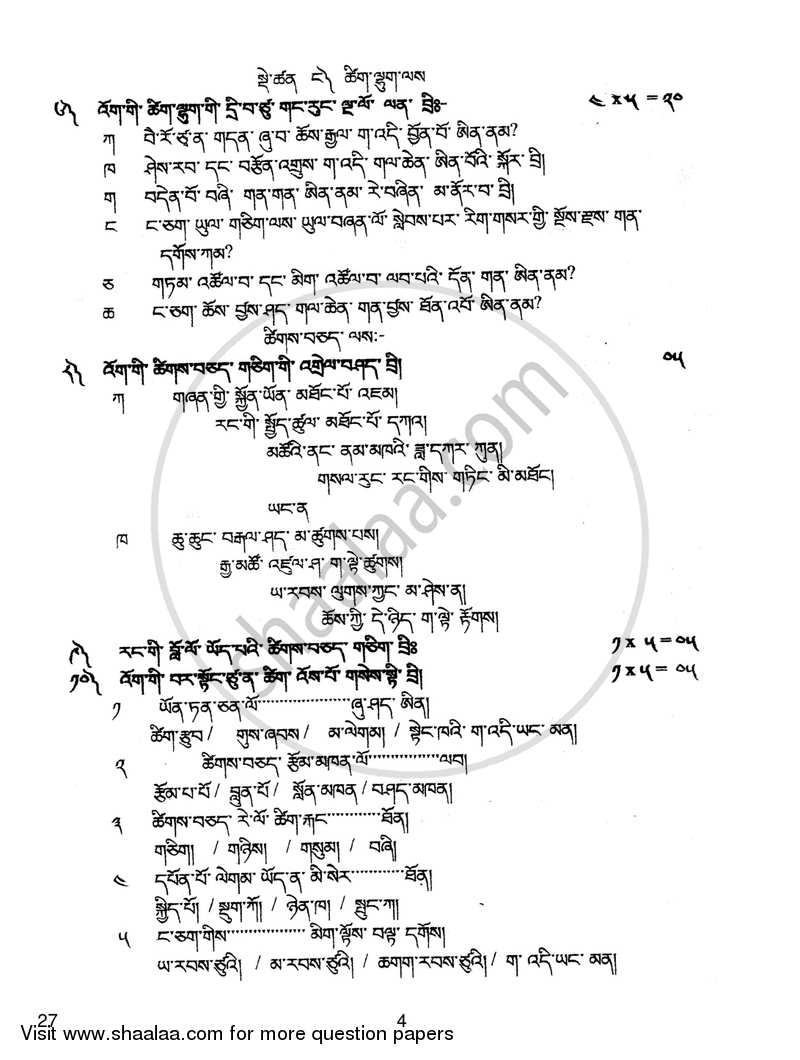 སྡེ་ཚན ང༽ ཚིག་ལྷུག་ལས
༧༽ འོག་གི་ ཚིག་ལྷུག་གི་ དྲི་བ་ཙུ་ གང་རུང་ ལྔ་ལོ་ ལན་ བྲིཿ- ༤ x ༥ = ༢༠
ཀ བེ་རོ་ཙ་ན་ གདན་ཞུ་བ་ ཆོས་རྒྱལ་ ག་འདི་ བྱོན་བོ་ ཨིན་ནམ?
ཁ ཤེས་རབ་ དང་ བརྩོན་འགྲུས་ ག་འདི་ གལ་ཆེན་ ཨིན་བོའི་ སྐོར་ བྲི།
ག བདེན་པོ་ བཞི་ གན་གན་ ཨིན་ནམ་ རེ་བཞིན་ མ་ནོར་བ་ བྲི།
ང ང་ཅག་ ཡུལ་ གཅིག་ལས་ ཡུལ་བཞན་ལོ་ སླེབས་པར་ རིག་གསར་གྱི་ སྤོས་རྫས་ གན་
དགོས་ཀམ?
ཅ གཏམ་ འཚོལ་བ་ དང་ མིག་ འཚོལ་བ་ ལབ་པའི་ དོན་ གན་ ཨིན་ནམ?
ཆ ང་ཅག་ ཆོས་ བྱས་ཤད་ གལ་ཆེན་ གན་བྱས་ ཐོན་འབོ་ ཨིན་ནམ?
ཚིགས་བཅད་ ལས:-
༨༽ འོག་གི་ ཚིགས་བཅད་ གཅིག་གི་ འགྲེལ་བཤད་ བྲི། ༠༥
ཀ གཞན་གྱི་ སྐྱོན་ཡོན་ མཐོང་པོ་ འཇམ།
རང་གི་ སྤྱོད་ཚུལ་ མཐོང་པོ་ དཀའ།
མཚོའི་ནང་ ནམ་མཁའི་ ཟླ་དཀར་ ཀུན།
གསལ་རུང་ རང་གིས་ གཏིང་ མི་མཐོང།
ཡང་ན
ཁ ཆུ་ཆུང་ བརྒལ་ཤད་ མ་ཚུགས་པས།
རྒྱ་མཚོ་ འཛུལ་ཤ་ ག་ལྟེ་ཚུགས།
ཡ་རབས་ ལུགས་ཀྱང་ མ་ཤེས་ན།
ཆོས་ཀྱི་ དེ་ཉིད་ ག་ལྟེ་ རྟོགས།
༩༽ རང་གི་ བློ་ལོ་ ཡོད་པའི་ ཚིགས་བཅད་ གཅིག་ བྲིཿ ༡ x ༥ = ༠༥
༡༠༽ འོག་གི་ བར་སྟོང་ཙུ་ན་ ཚིག་ འོས་བོ་ གསེས་སྟེ་ བྲི། ༡ x ༥ = ༠༥
༡ ཡོན་ཏན་ཅན་ལོ་....................ཞུ་ཤད་ ཨིན།
ཚིག་རྩུབ / གུས་ཞབས / མ་ལེགམ། / སྟེང་ཁའི་ ག་འདི་ཡང་ མན།
༢ ཚིགས་བཅད་ རྩོམ་མཁན་ལོ་................ལབ།
རྩོམ་པ་པོ / བླུན་པོ / སློན་མཁན / བཤད་མཁན།
༣ ཚིགས་བཅད་ རེ་ལོ་ ཚིག་རྐང་............ཐོན།
གཅིག། / གཉིས། / གསུམ། / བཞི།
༤ དཔོན་པོ་ ལེགམ་ ཡོད་ན་ མི་སེར་............ཐོན།
སྐྱིད་པོ། / སྡུག་ཀོ། / ཉེན་ཁ། / སྤུང་ཀ།
༥ ང་ཅག་གིས་.................. མིག་ལྟོས་ བལྟ་ དགོས།
ཡ་རབས་ཙུའི། / མ་རབས་ཙུའི། / ཆགག་རབས་ཙུའི། / ག་ འདི་ཡང་ མན།
shaalaa.com
27 4
Visit www.shaalaa.com for more question papers